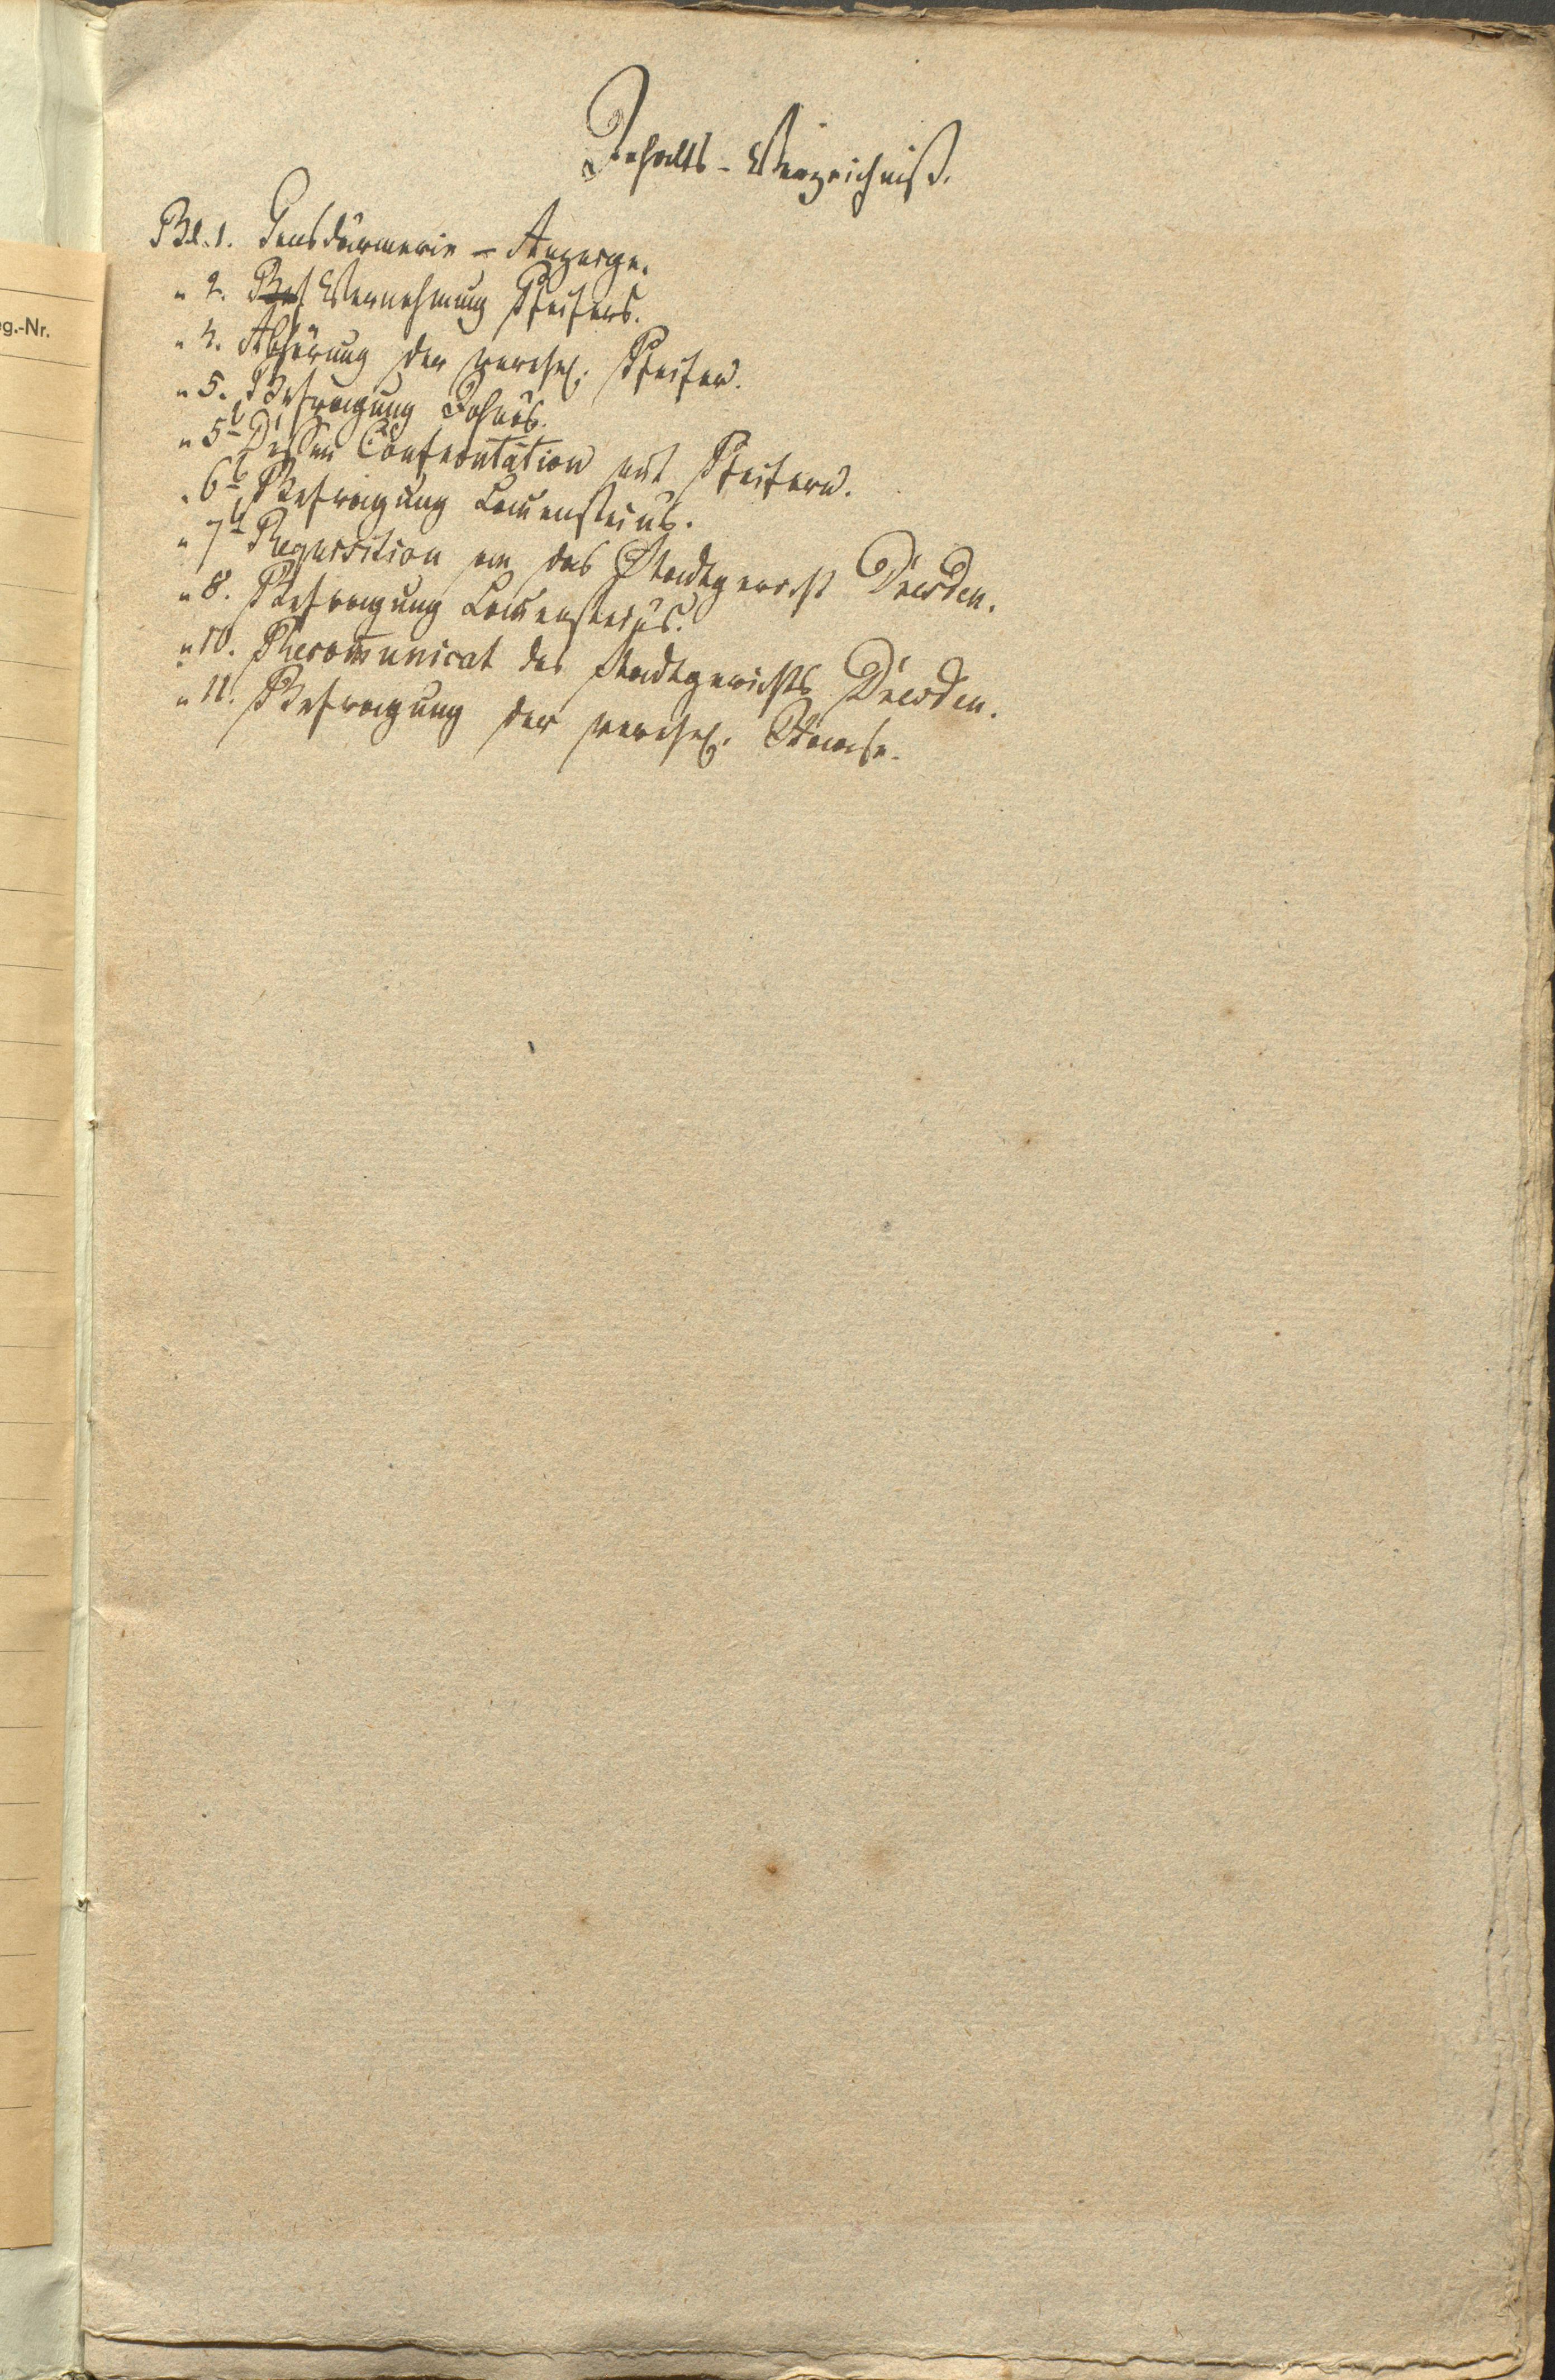 Inhalts-Verzeichniß.
Bl. 1. Gensdarmerie-Anzeige.
" 2. Bef Vernehmung Pfeifers.
" 4. Abhörung der verehel. Pfeifer.
" 5. Befragung Johns.
" 5b Dessen Confrontation mit Pfeifern.
" 6b Befragung Lauensteins.
" 7b Requisition an das Stadtgericht Dresden.
" 8. Befragung Lauensteins.
" 10. Recommunicat des Stadtgerichts Dresden.
" 11. Befragung der verehel.
g.-Nr.